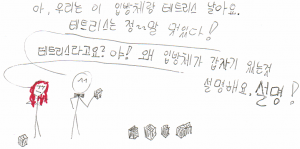 아, 우리는 이 입방체랑 테트리스 놀아요.
테트리스는 정~말 멋있다!
테트리스라고요? 야! 왜 입방체가 갑자기 있는걸
설명해요. 설명!